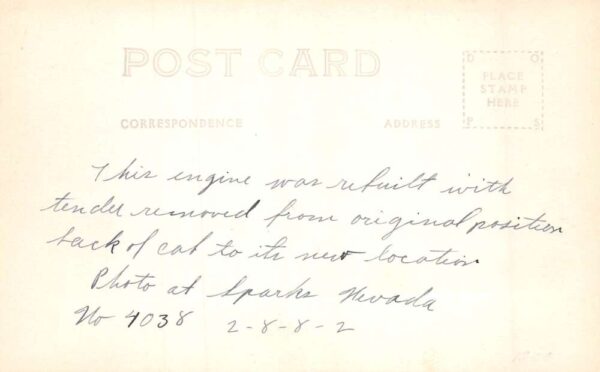 POST CARD
CORRESPONDENCE
ADDRESS
D O
PLACE
STAMP
HERE
P S
This engine was rebuilt with
tender removed from original position
back of cab to its new location
Photo at Sparks Nevada
No 4038 2-8-8-2